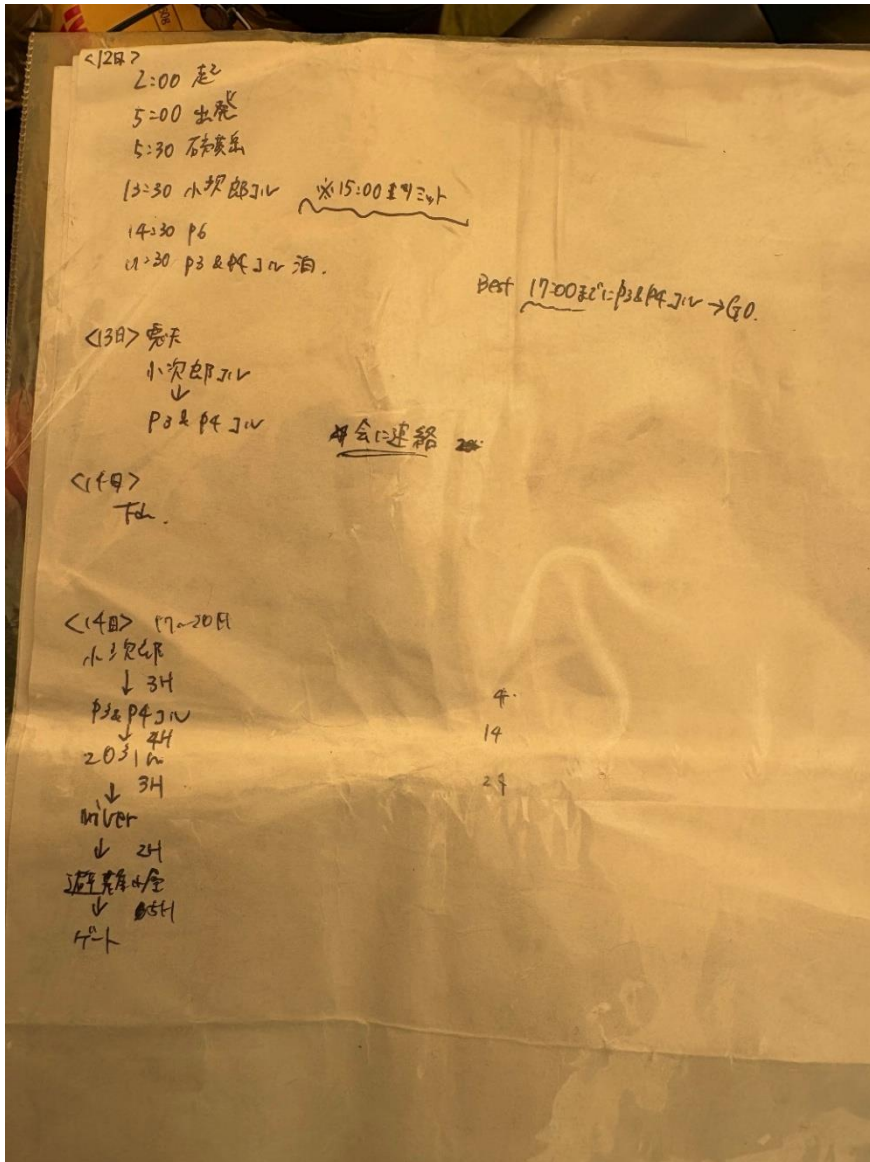 <12日>
2:00 起
5:00 出発
5:30 硫黄岳
13:30 小次郎コル ※15:00までリミット
14:30 P6
17:30 P3&P4コル 泊.
Best 17:00までにP3&P4コル→GO.
<13日> 荒天
小次郎コル
↓
P3&P4コル
会に連絡
<14日>
下山.
<14日> 17〜20日
小次郎
↓ 3H
P3&P4コル
↓ 4H
2031m
↓ 3H
river
↓ 2H
避難小屋
↓ 5H
ゲート
4.
14
24